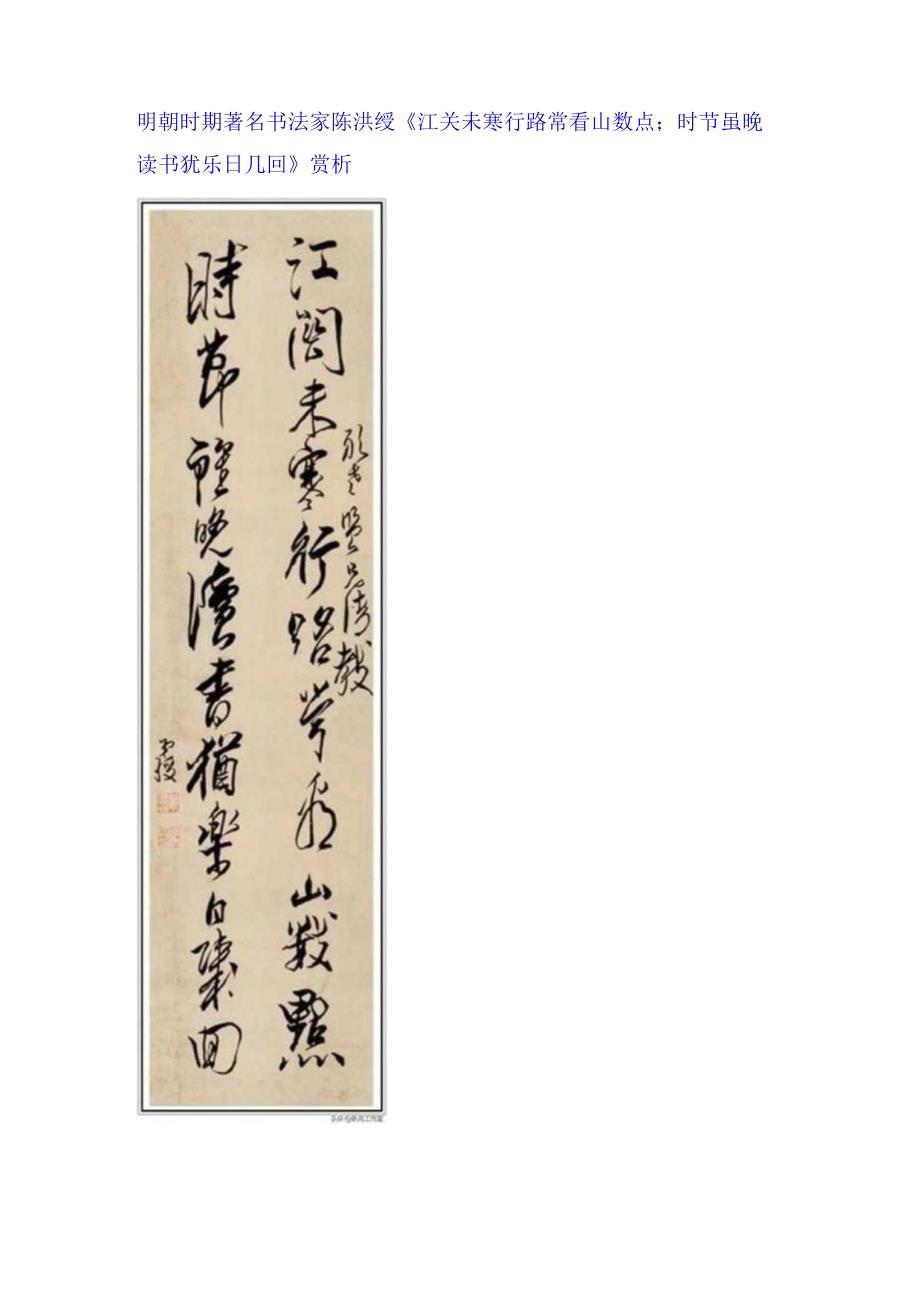 明朝时期著名书法家陈洪绶《江关未寒行路常看山数点；时节虽晚
读书犹乐日几回》赏析
江關未寒行路常看山數點
時節雖晚讀書猶樂日幾回